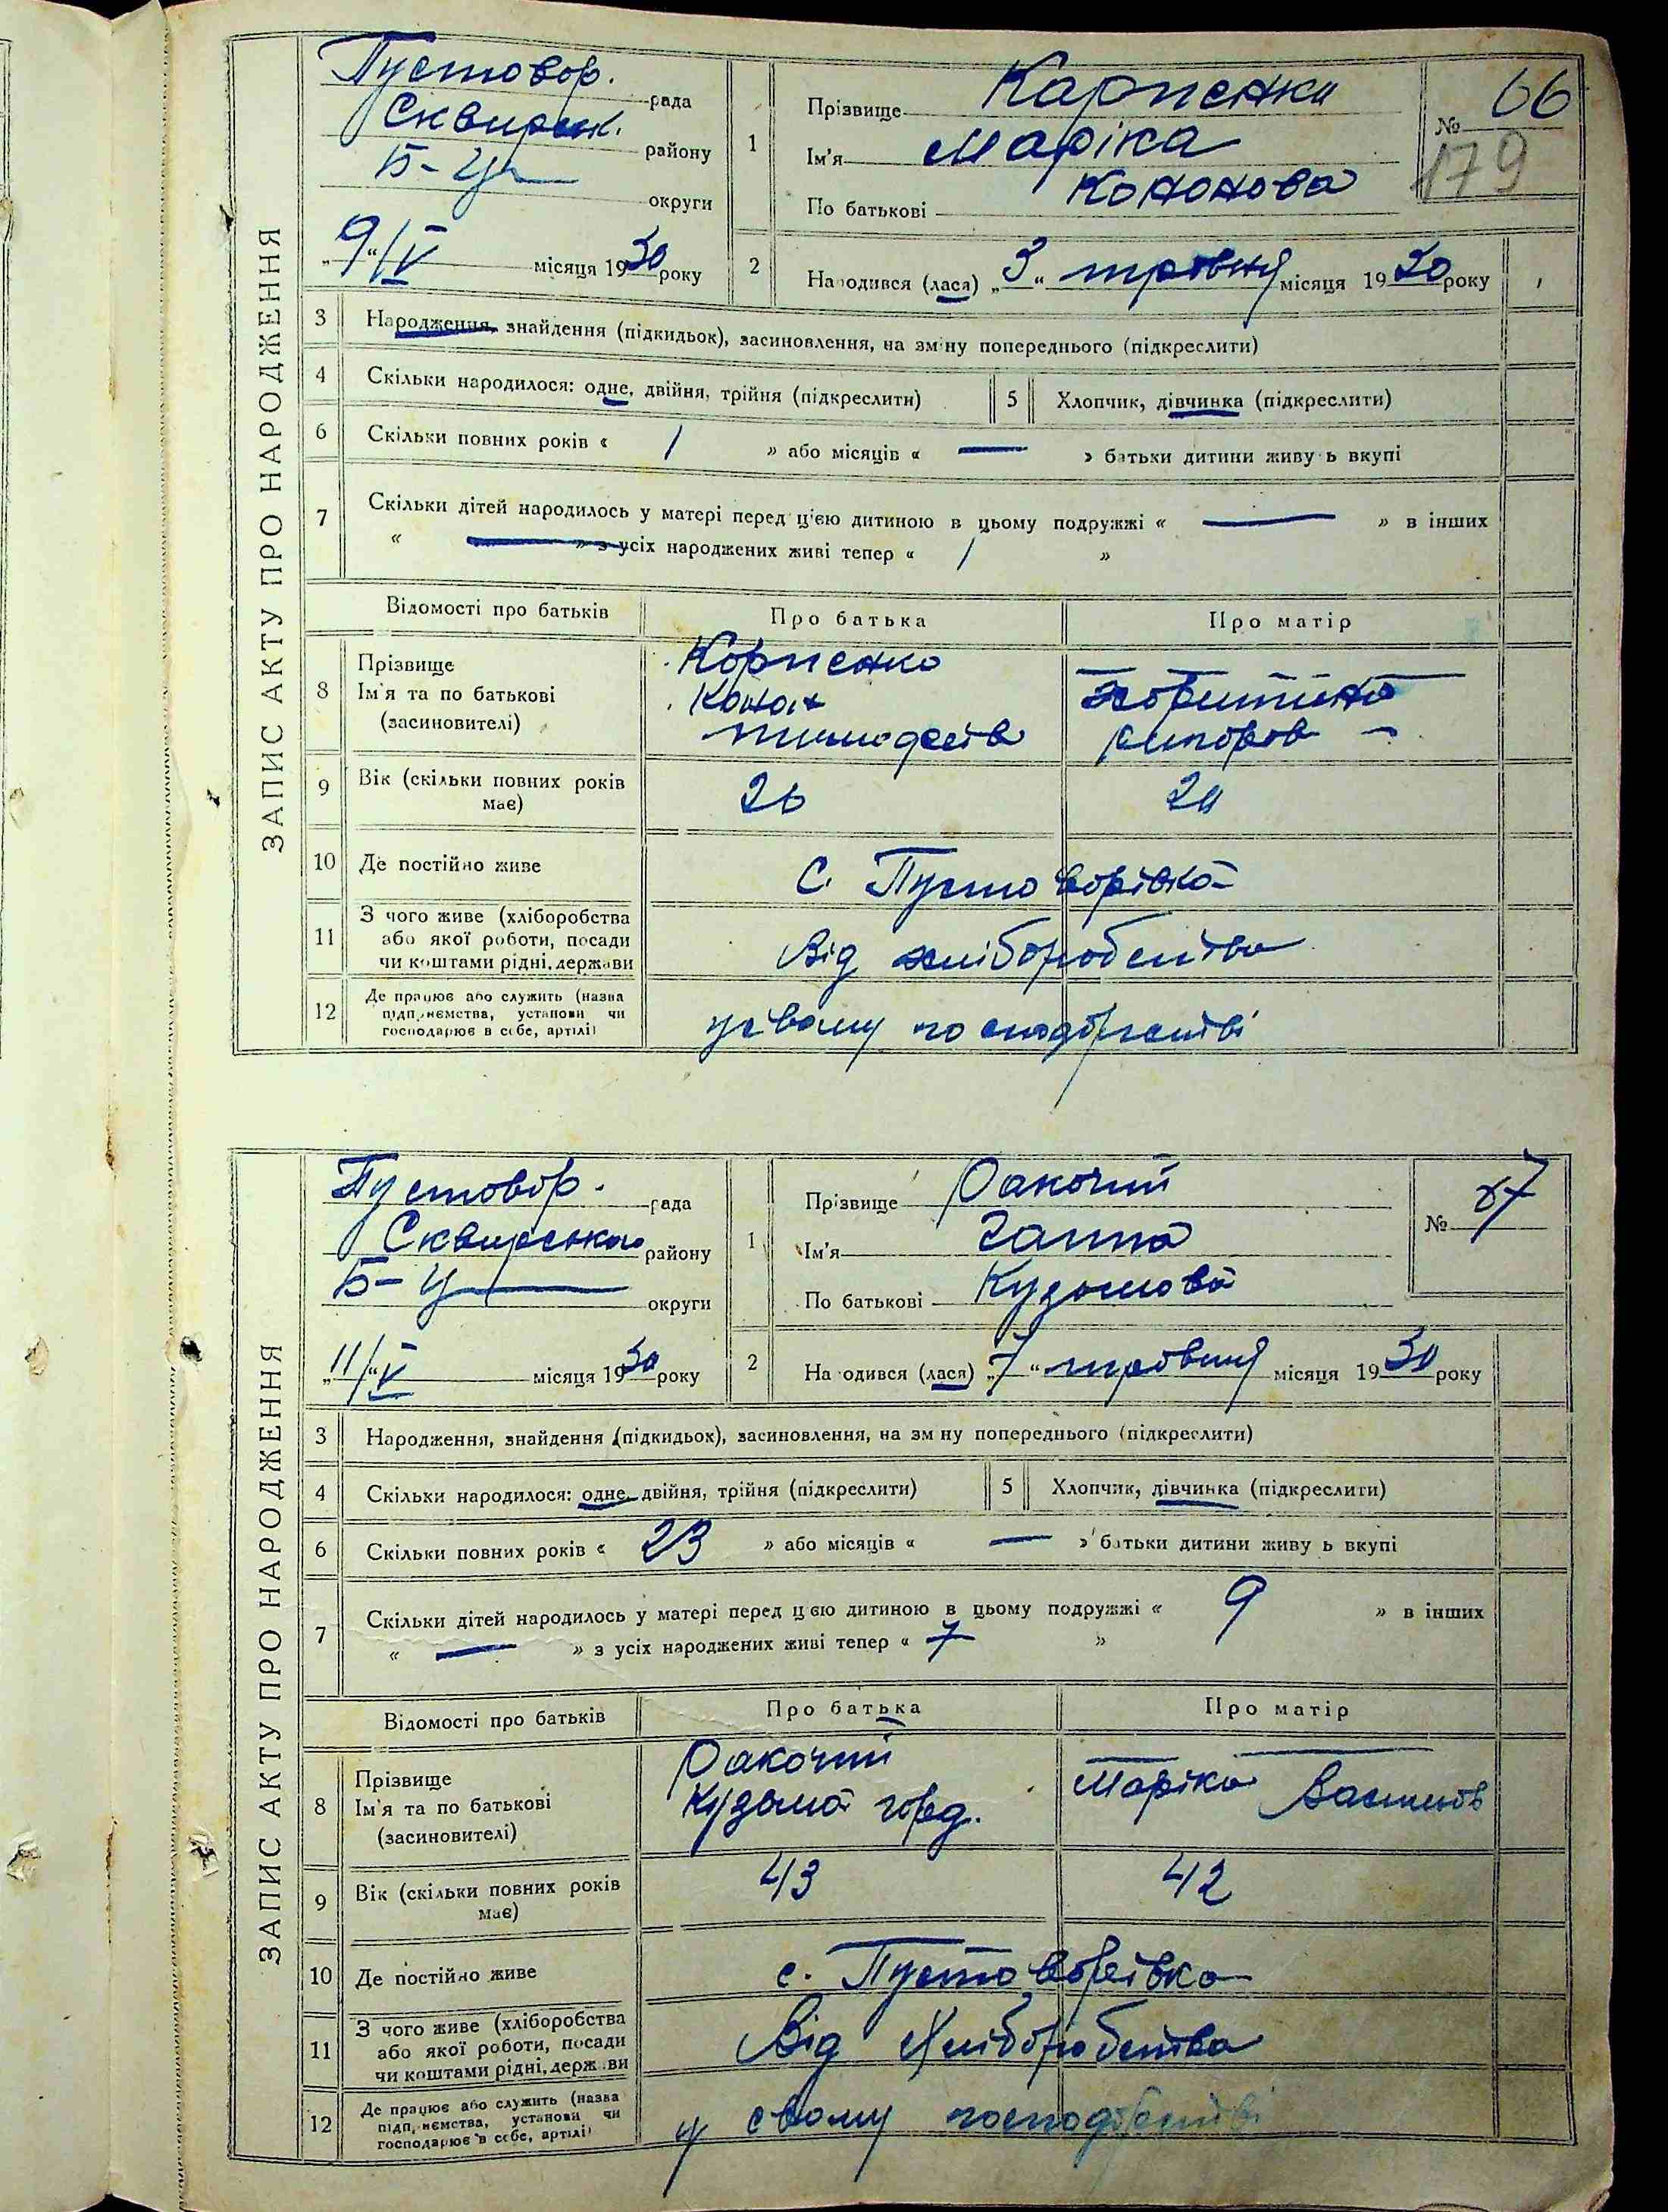 ЗАПИС АКТУ ПРО НАРОДЖЕННЯ
Пустовор. рада
Сквирськ. району
Б-Ц округи
„9“/V місяця 1930 року
1 Прізвище Карпенко
Ім'я Маріка
По батькові Кононова
№ 66
179
2 Народився (лася) „3“ травня місяця 1930 року
3 Народження, знайдення (підкидьок), засиновлення, на зміну попереднього (підкреслити)
4 Скільки народилося: одне, двійня, трійня (підкреслити)
5 Хлопчик, дівчинка (підкреслити)
6 Скільки повних років « 1 » або місяців « — » батьки дитини живуть вкупі
7 Скільки дітей народилось у матері перед цією дитиною в цьому подружжі « — » в інших
« — » з усіх народжених живі тепер « 1 »
Відомості про батьків Про батька Про матір
8 Прізвище
Ім'я та по батькові
(засиновителі)
Карпенко
Конон
Тимофеев
—
Хористина
9 Вік (скільки повних років
має)
26
10 Де постійно живе
С. Пустоворівка
11 З чого живе (хліборобства
або якої роботи, посади
чи коштами рідні, держави
Від хліборобства
12 Де працює або служить (назва
підприємства, установи чи
господарює в себе, артілі)
у свому господарстві
ЗАПИС АКТУ ПРО НАРОДЖЕННЯ
Пустовор. рада
Сквирського району
Б-Ц округи
„11“/V місяця 1930 року
1 Прізвище Ракочий
Ім'я Ганна
По батькові Кузьмова
№ 67
2 Народився (лася) „7“ травня місяця 1930 року
3 Народження, знайдення (підкидьок), засиновлення, на зміну попереднього (підкреслити)
4 Скільки народилося: одне, двійня, трійня (підкреслити)
5 Хлопчик, дівчинка (підкреслити)
6 Скільки повних років « 23 » або місяців « — » батьки дитини живуть вкупі
7 Скільки дітей народилось у матері перед цією дитиною в цьому подружжі « 9 » в інших
« — » з усіх народжених живі тепер « 7 »
Відомості про батьків Про батька Про матір
8 Прізвище
Ім'я та по батькові
(засиновителі)
Ракочий
Кузьма горд.
—
Маріка Васильов
9 Вік (скільки повних років
має)
43 42
10 Де постійно живе
с. Пустоворівка
11 З чого живе (хліборобства
або якої роботи, посади
чи коштами рідні, держави
Від Хліборобства
12 Де працює або служить (назва
підприємства, установи чи
господарює в себе, артілі)
у свому господарстві